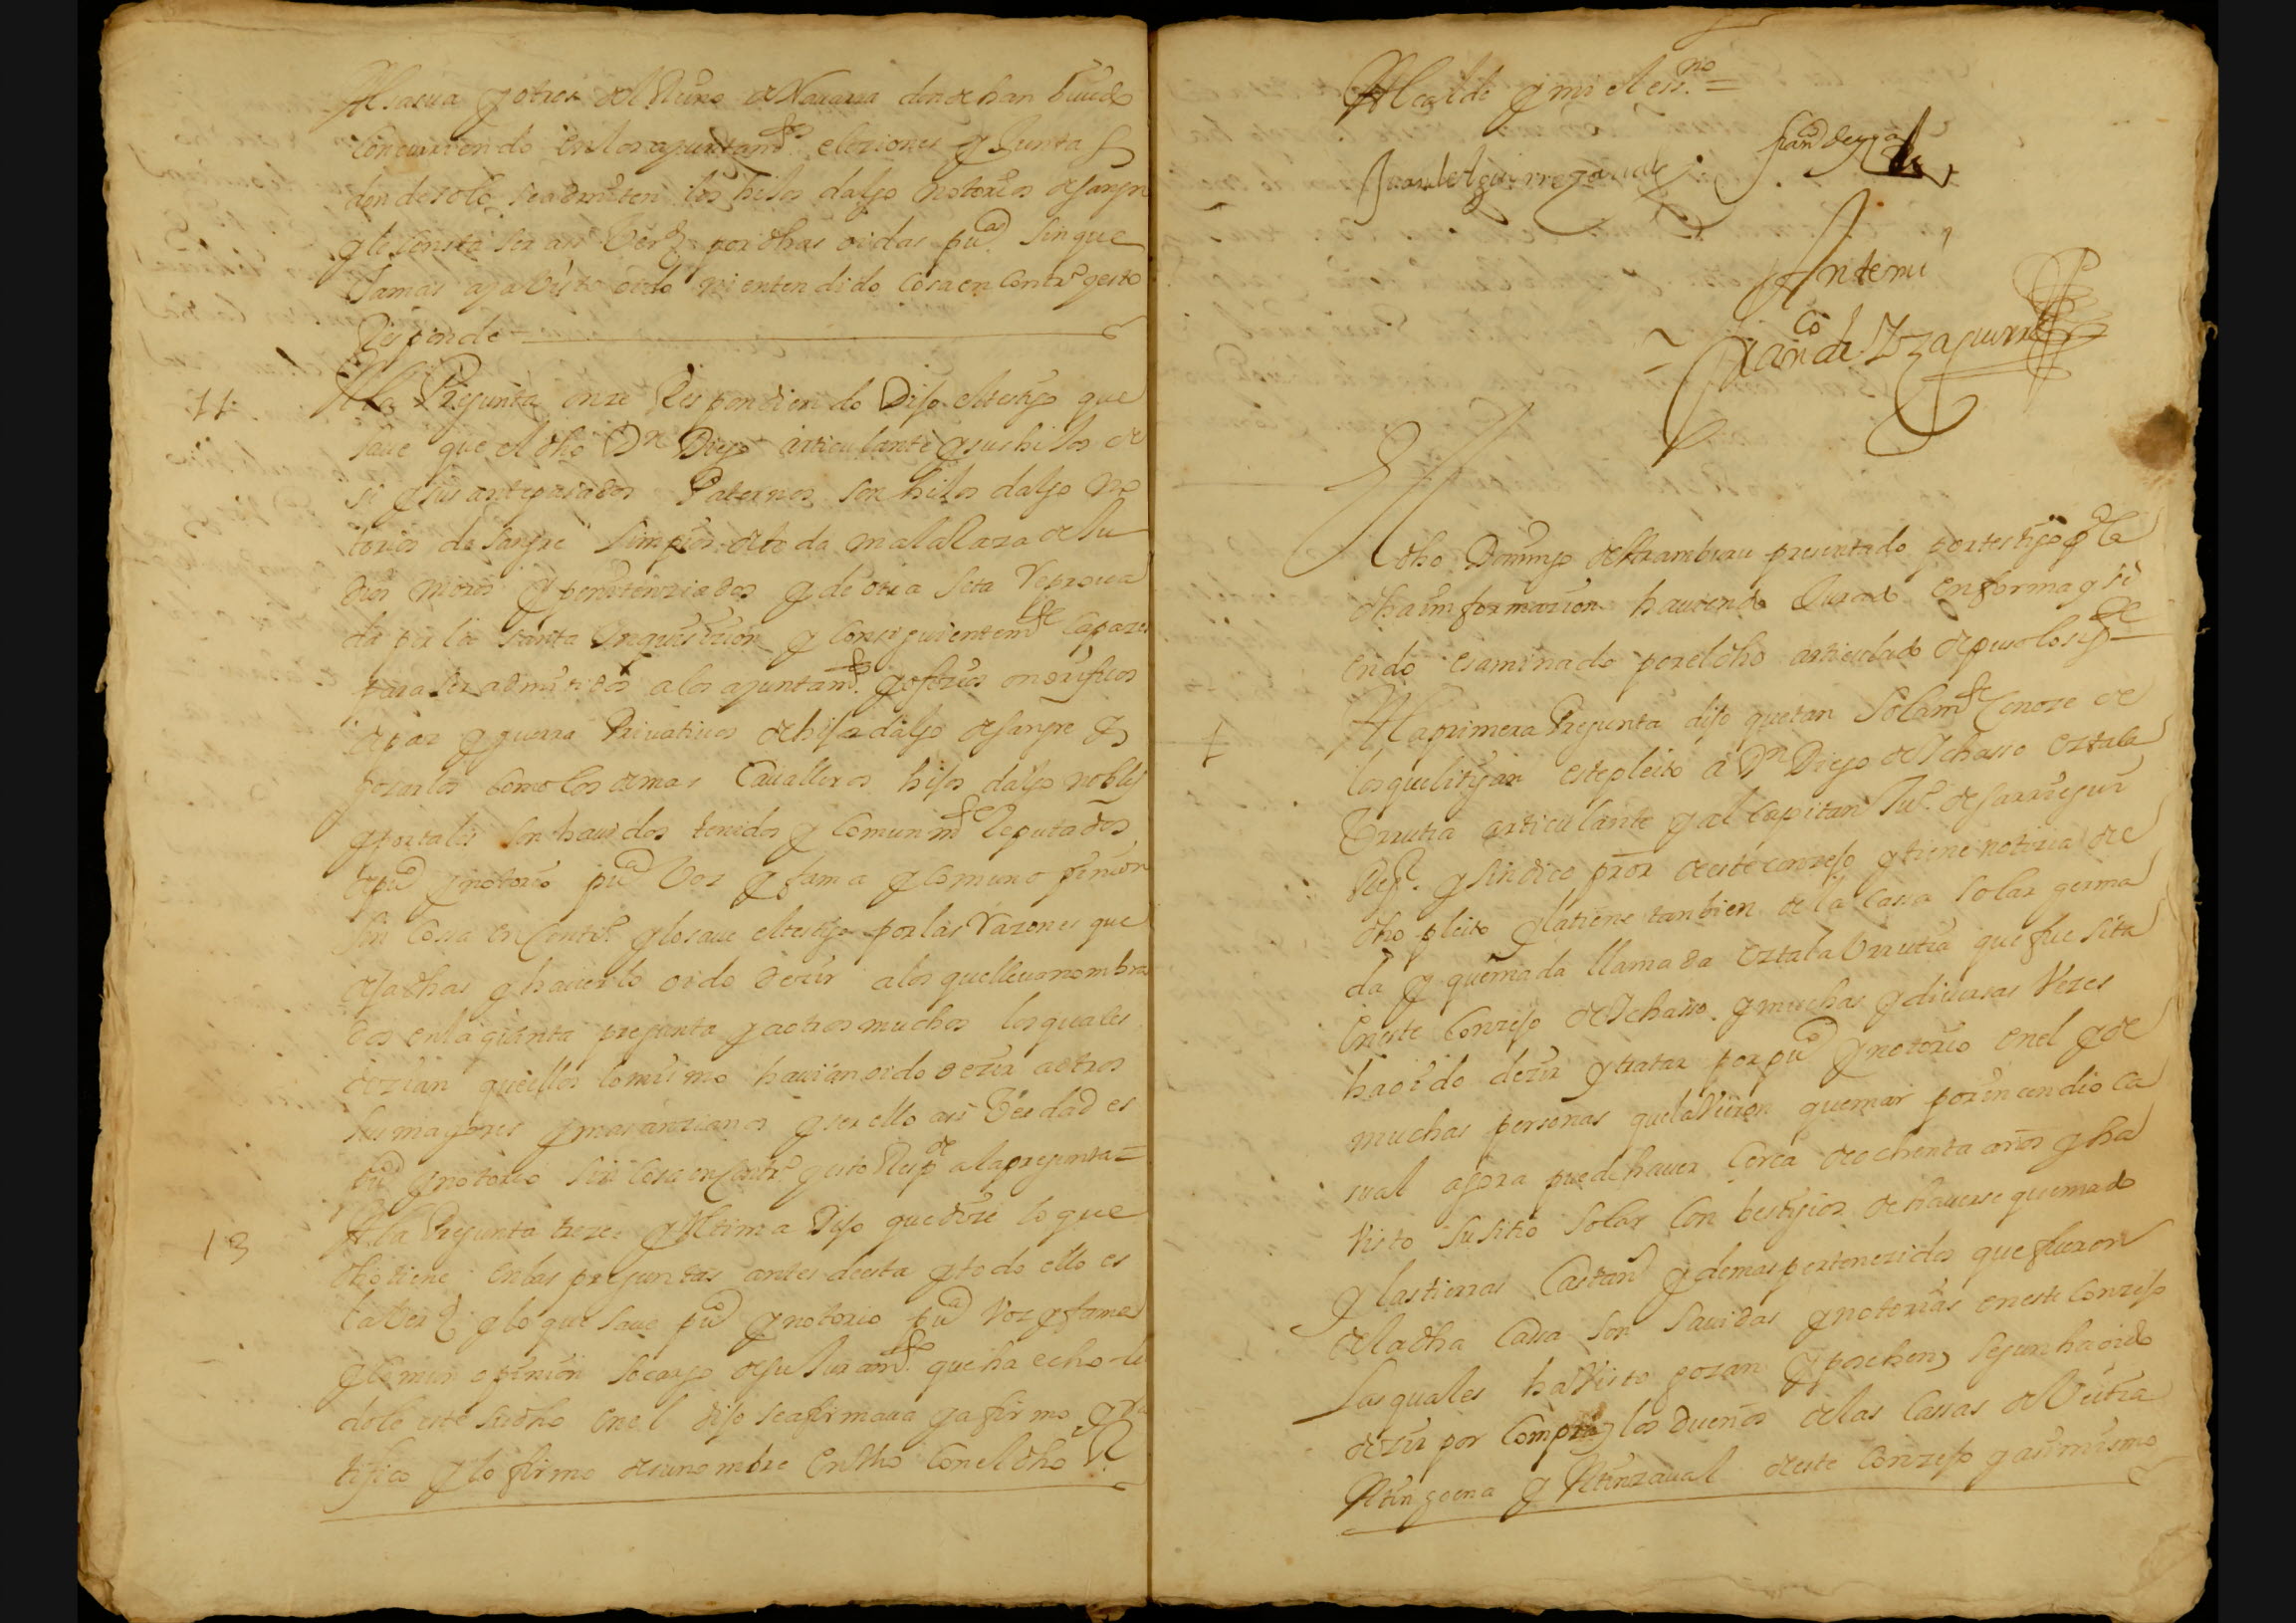 Alsasua y otros del Reino de Nauarra donde han viuido
concurriendo en los ayuntam.tos eleziones y Juntas
donde solo se admiten los hijos dalgo notorios de sangre
y le consta ser asi verd por dhas oidas pu.cas sin que
Jamas aya visto oido ni entendido cosa en contr.o y esto
Responde
11 A la Pregunta onze Respondiendo Dijo el testigo que
saue que el dho Dn Diego articulante y sus hijos de
si y sus antepasados Paternos son hijos dalgo no
torios de sangre limpios de toda mala Raza de Ju
dios moros y penitenziados y de otra seta Reproua
da por la santa Inquisizion y consiguientem.te capazes
para ser admitidos a los ayuntam.tos y ofizios onorificos
de paz y guerra Priuatiuos de hijos dalgo de sangre y
gozarlos como los demas Caualleros hijos dalgo nobles
y por tales son hauidos tenidos y comunm.te Reputados
de pu.co y notorio pu.ca voz y fama y comun opinion
sin cossa en contr.o y lo saue el testigo por las Razones que
deja dhas y hauerlo oido dezir a los que lleua nombra
dos en la quinta pregunta y a otros muchos los quales
dezian que ellos lo mismo hauian oido dezir a otros
sus mayores y mas anzianos y ser ello asi Verdad es
pu.co y notorio sin cosa en contr.o y esto Resp.de a la pregunta =
13 A la Pregunta treze y Vltima Dijo que dize lo que
dho tiene en las preguntas antes de esta y todo ello es
la verd y lo que saue pu.co y notorio pu.ca voz y fama
y comun opinion so cargo de su Juram.to que ha echo le
dole este su dho en el dijo se afirmaua y afirmo y ra
tifico y lo firmo de su nombre en dho con el dho
Alcalde y mi el ess.no =
Juan de Aguirrezaual
Fran de
Ante mi
Fran.co de Yzaguirre
El
dho Domingo de Arambu presentado por testigo p.a la
dha informazion hauiendo Jurado en forma y si
endo esaminado por el dho articulado depuso lo sig.te
1 A la primera Pregunta dijo que tan solam.te conoze de
los que litigan este pleito a Dn Diego de Ichasso eztala
Vrrutia articulante y al Capitan Ju.o de Sarriegui
Rej.or y sindico pror de este conzejo y tiene notizia de
dho pleito y la tiene tanbien de la Cassa solar yerma
da y quemada llamada eztala Vrrutia que fue sita
en este Conzejo de Ichasso y muchas y diuersas Vezes
ha oido dezir y tratar por pu.co y notorio en el y de
muchas personas que la vieron quemar por inzendio ca
sual agora puede hauer cerca de ochenta años y ha
visto su sitio solar con bestigios de hauerse quemado
y las tierras Castan y demas pertenezidos que fueron
de la dha Cassa son sauidas y notorias en este Conzejo
Las quales ha visto gozan y posehen segun ha oido
dezir por compra los dueños de las Cassas de Vrutia
Atingoena y Atinzaual de este Conzejo y asi mismo